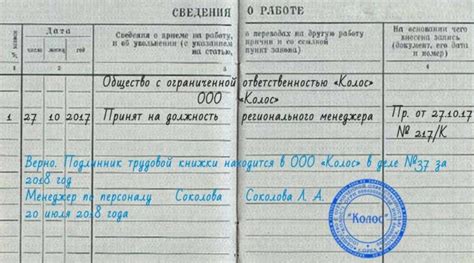 СВЕДЕНИЯ О РАБОТЕ
№ записи
Дата
число месяц год
Сведения о приеме на работу, о переводах на другую работу
и об увольнении (с указанием причин и со ссылкой
на статью, пункт закона)
На основании чего
внесена запись
(документ, его дата
и номер)
1 2 3 4
Общество с ограниченной ответственностью «Колос»
ООО «Колос»
1 27 10 2017 Принят на должность регионального менеджера Пр. от 27.10.17
№ 217/К
Верно. Подлинник трудовой книжки находится в ООО «Колос» в деле №37 за
2018 год
Менеджер по персоналу Соколова Соколова Л. А.
20 июля 2018 года
"Колос"